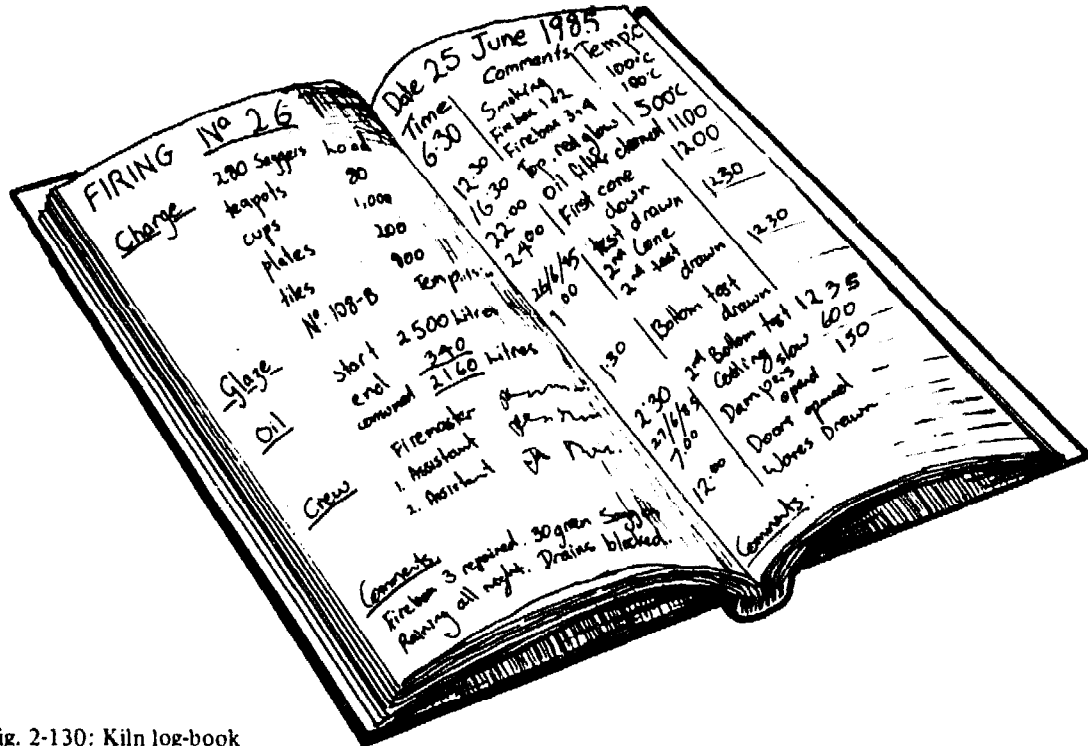 FIRING Nº 26
Charge 280 Saggers Load
teapots 80
cups 1,000
plates 200
tiles 900
Glaze Nº. 108-B
Oil start 2500 Litres
end 340
consumed 2160 Litres
Crew Firemaster
1. Assistant
2. Assistant
Comments
Firebox 3 repaired. 30 green Saggers
Raining all night. Drains blocked.
Date 25 June 1985
Time Comments Temp.C
6.30 Smoking 100°C
Firebox 1&2 100°C
12.30 Firebox 3,4 500°C
16.30 Top. red glow 1100
22.00 Oil filter cleaned 1200
24.00 First cone
down
26/6/85 test drawn 1230
1 00 2nd Cone
2nd test
drawn 1230
1.30 Bottom test
drawn
2.30 2nd Bottom test 1235
27/6/85 Cooling slow 600
7.00 Dampers
opened 150
12.00 Doors opened
Wares Drawn
Comments:
ig. 2-130: Kiln log-book